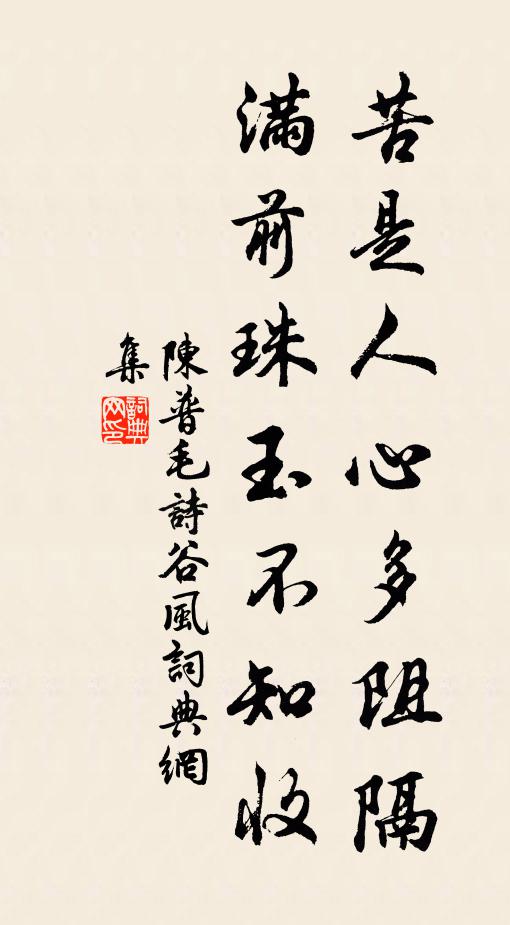 苦是人心多阻隔
滿前珠玉不知收
陳普毛詩谷風詞典網
集
詞典
网印